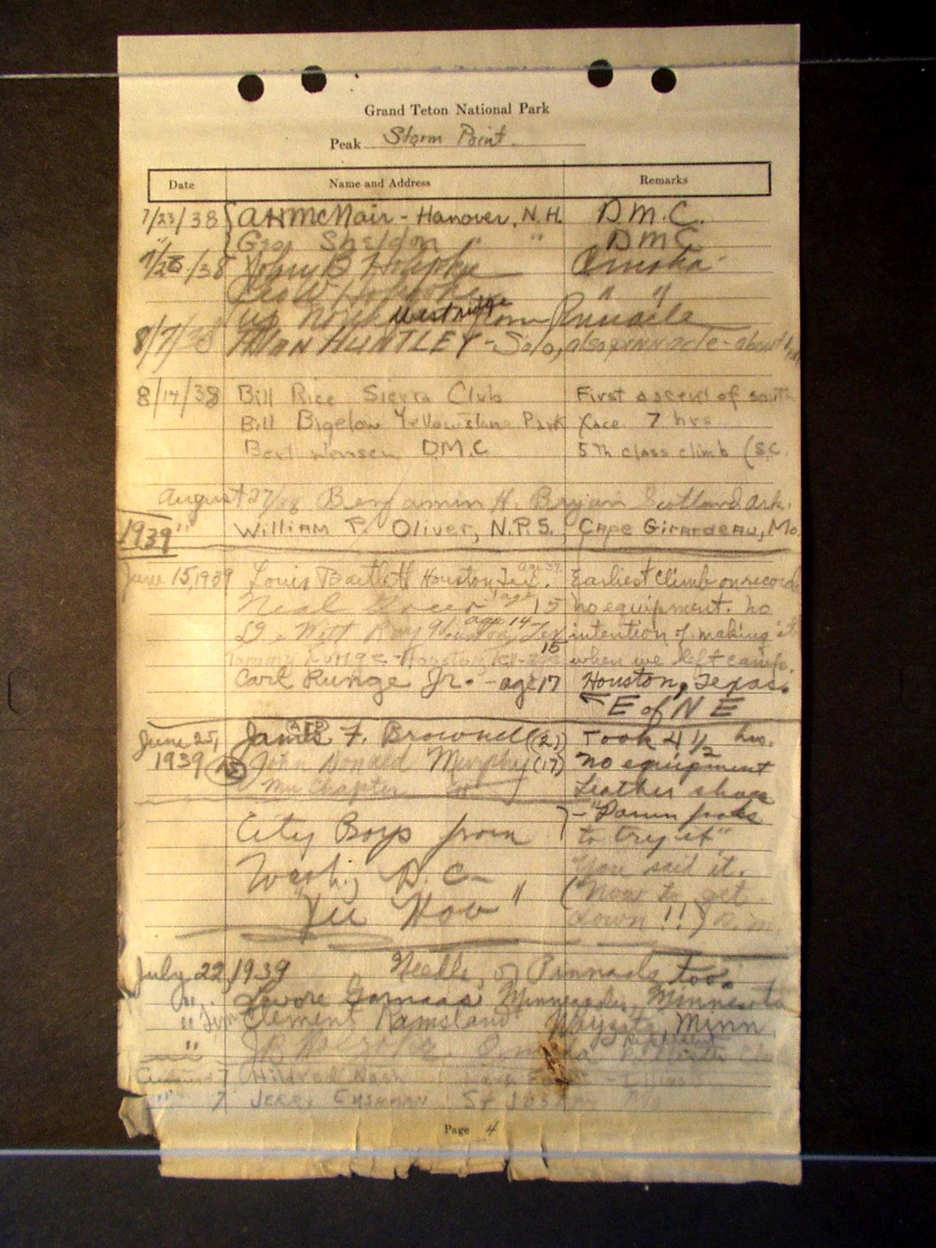 Grand Teton National Park
Peak Storm Point.
Date Name and Address Remarks
7/23/38 A H McNair - Hanover, N.H. D.M.C.
" Geo. Sheldon " " DMC
/38 John B Omaha
W " "
up North West ridge from Pinnacle
8/7/38 Allan HUNTLEY - Solo, also pinnacle - about
8/17/38 Bill Rice Sierra Club First ascent of south
Bill Bigelow Yellowstone Park face 7 hrs
Bert Jensen D.M.C 5th class climb (S.C.
August 27/38 Benjamin H. Bryan Scotland Ark.
1939 " William P. Oliver, N.P.S. Cape Girardeau, Mo.
June 15, 1939 Louis Bartlett Houston Tex. Earliest climb on record
Neal Greer age 15 no equipment. no
De Witt Ray Houston, Tex age 14 intention of making it
Tommy Runge - Houston Tex - age 15 when we left camp.
Carl Runge Jr. - age 17 Houston, Texas.
E of N E
June 25, James F. Brownell (21) Took 4 1/2 hrs.
1939 John Donald Murphy (17) No equipment
Mu Chapter Leather shoes
- "Damn fools
City Boys from to try it"
Wash, D.C. You said it.
"Yee Hoo" (Now to get
down!!) D.M.
July 22, 1939 Needle, or Pinnacle too.
" Levore Garnaas Minneapolis, Minnesota
" Clement Ramsland Wayzata, Minn
" Omaha
August 7 Mildred Nash
" 7 Jerry Cushman St Joseph Mo
Page 4